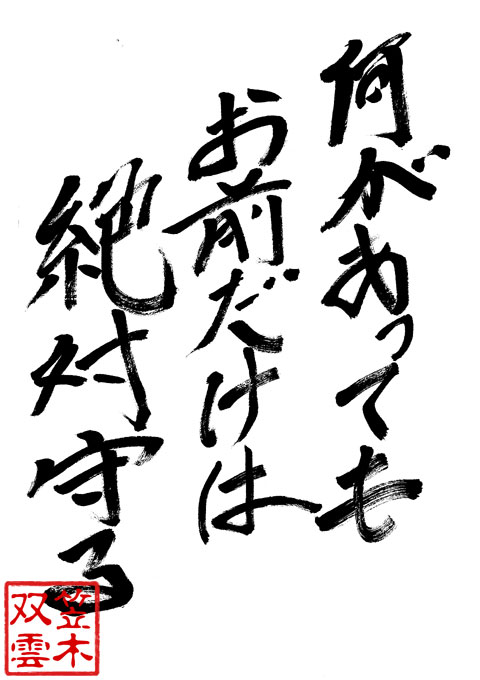 何があっても
お前だけは
絶対守る
笠木
双雲